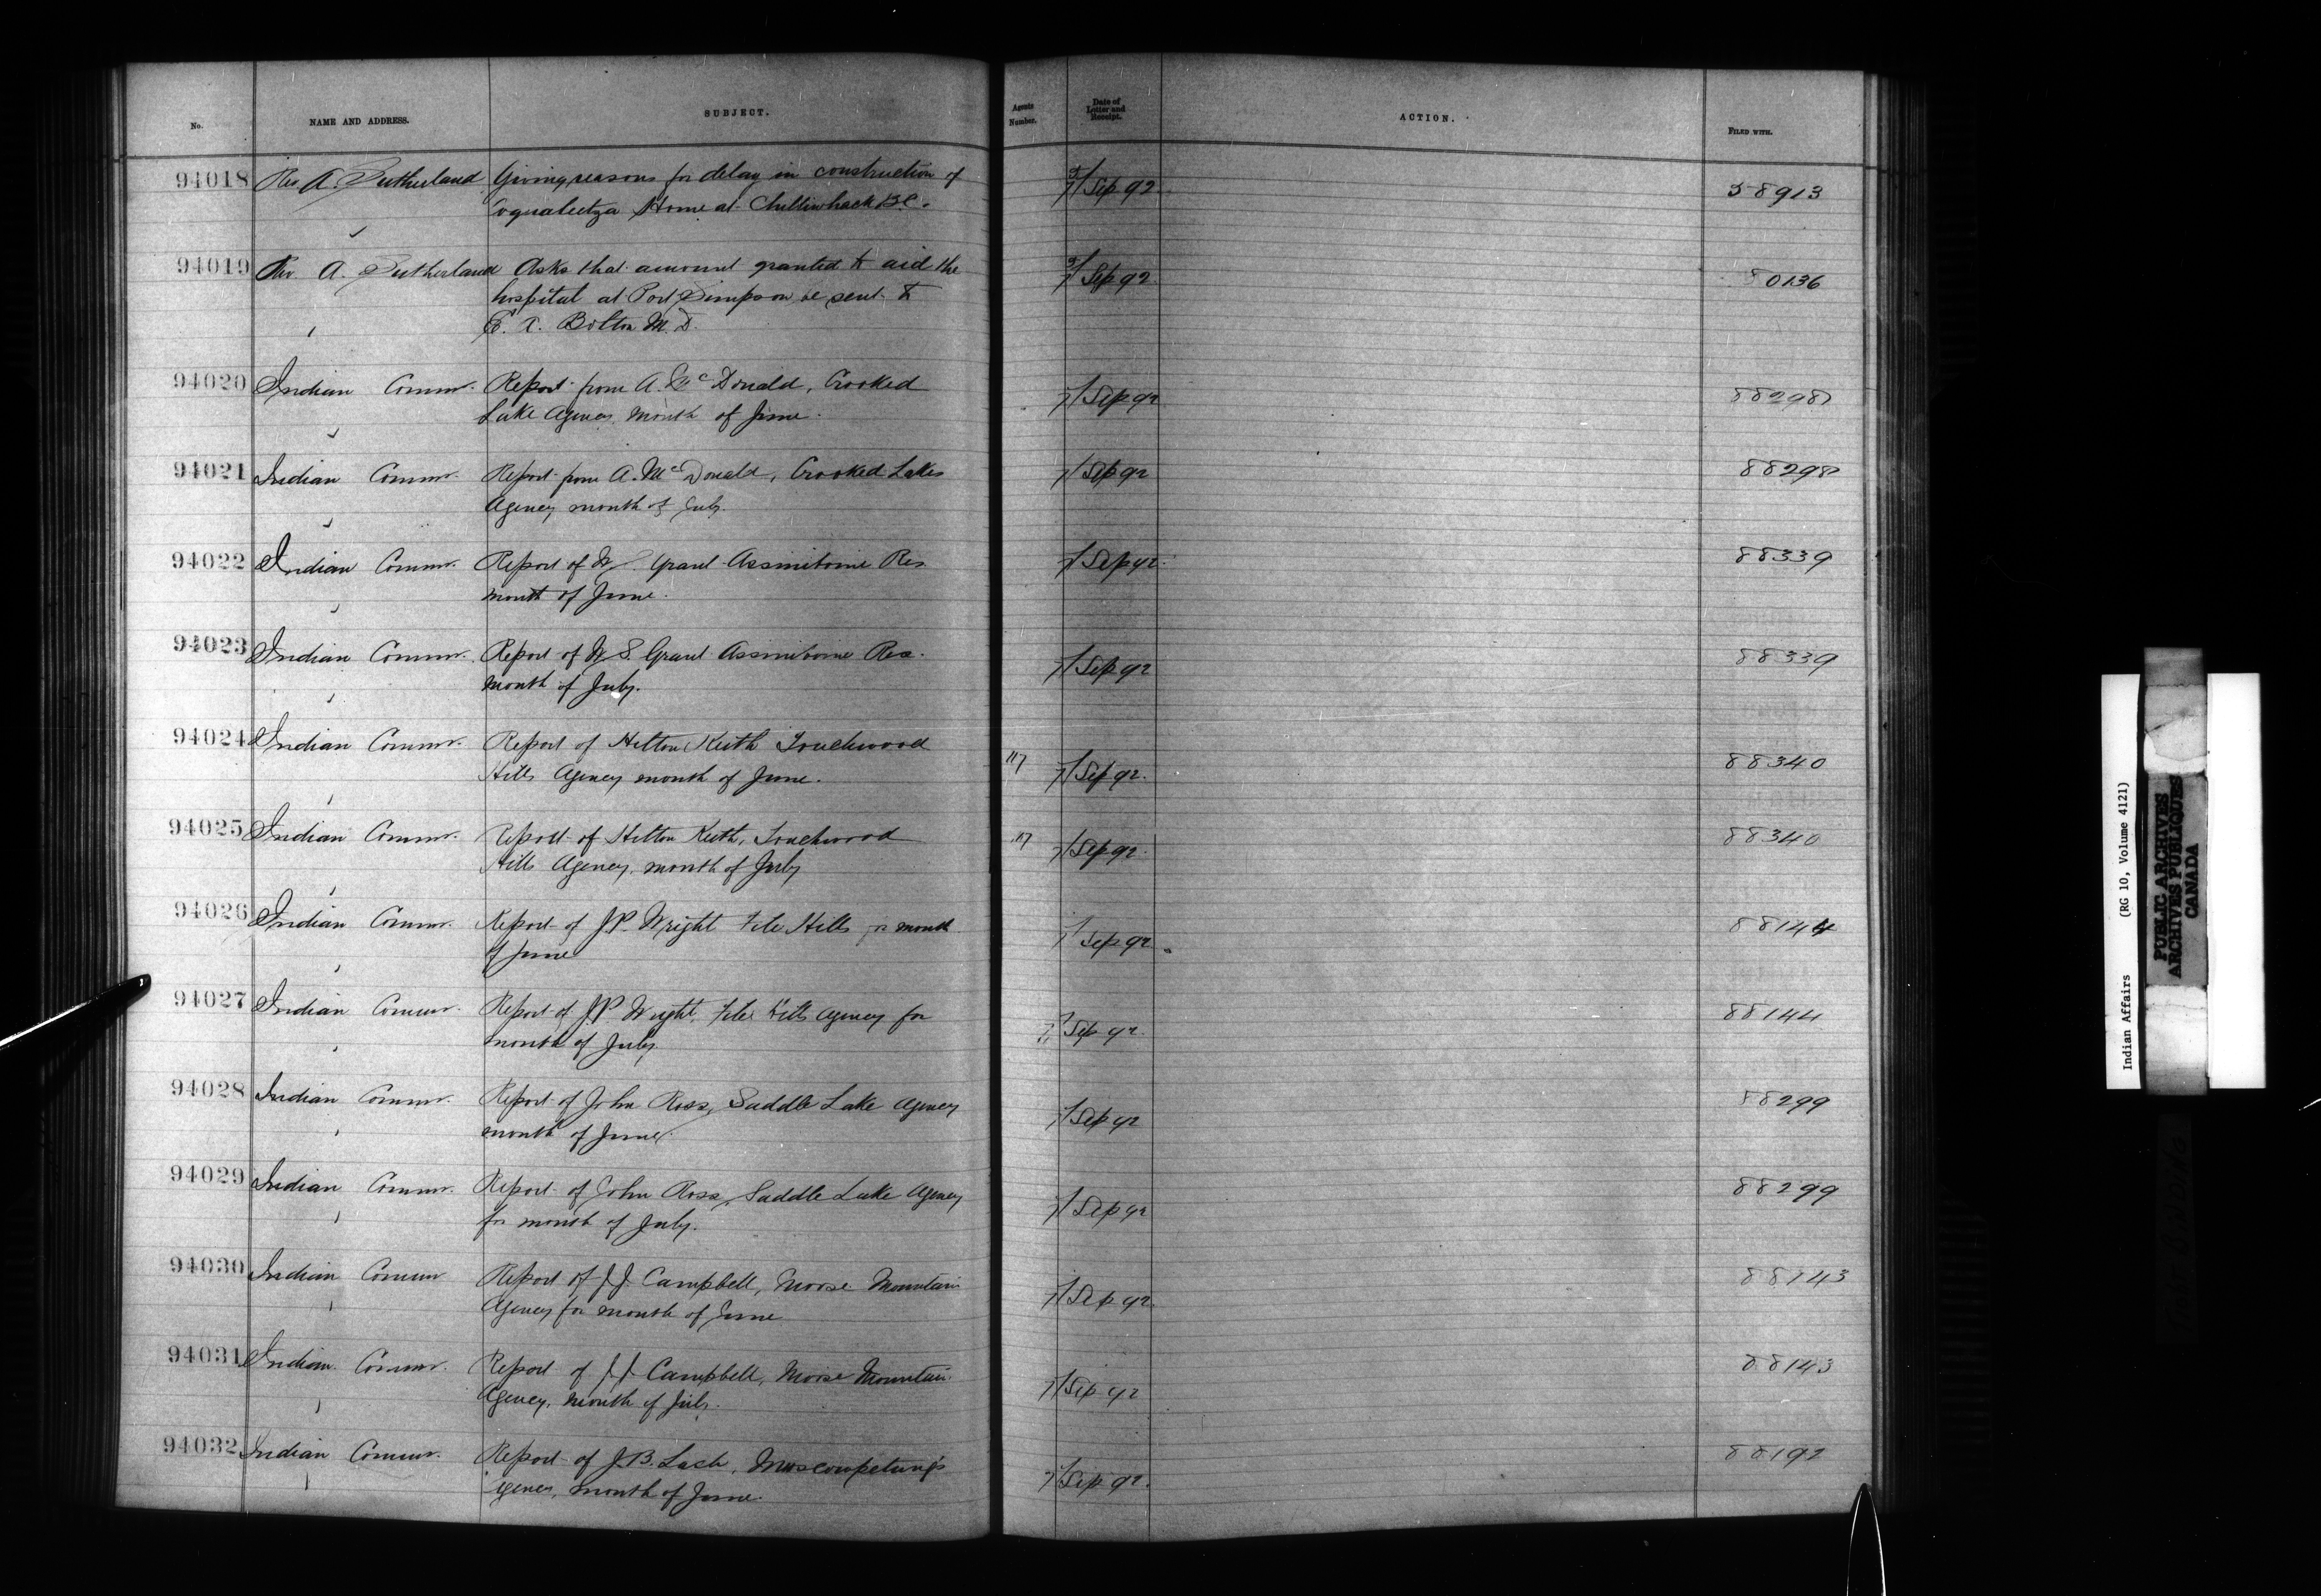 No. NAME AND ADDRESS. SUBJECT. Agents Number. Date of Letter and Receipt. ACTION. FILED WITH.
94018 Rev A. Sutherland Giving reasons for delay in construction of 3/7 Sep 92 58913
Coqualeetza Home at Chilliwhack B.C.
94019 Rev. A. Sutherland Asks that amount granted to aid the 3/7 Sep 92 80136
hospital at Port Simpson be sent to
Bolton M.D.
94020 Indian Commr. Report from A. McDonald, Crooked Sep 92 88298
Lake Agency month of June.
94021 Indian Commr. Report from A. McDonald, Crooked Lakes Sep 92 88298
Agency month of July.
94022 Indian Commr. Report of W. S. Grant Assiniboine Res Sep 92 88339
month of June.
94023 Indian Commr. Report of W. S. Grant Assiniboine Res. Sep 92 88339
month of July.
94024 Indian Commr. Report of Hilton Keith Touchwood
Hills Agency month of June. 117 Sep 92. 88340
94025 Indian Commr. Report of Hilton Keith, Touchwood 117 Sep 92. 88340
Hills Agency, month of July
94026 Indian Commr. Report of J.P. Wright File Hills for month Sep 92 88144
of June
94027 Indian Commr. Report of J.P. Wright, File Hills Agency for Sep 92. 88144
month of July.
94028 Indian Commr. Report of John Ross, Saddle Lake Agency Sep 92 88299
month of June.
94029 Indian Commr. Report of John Ross, Saddle Lake Agency Sep 92 88299
for month of July.
94030 Indian Commr Report of J.J. Campbell, Moose Mountain Sep 92. 88143
Agency for month of June
94031 Indian Commr. Report of J.J. Campbell, Moose Mountain Sep 92 88143
Agency, month of July.
94032 Indian Commr. Report of J.B. Lash, Muscowpetung's Sep 92. 88192
Agency, month of June.
Indian Affairs (RG 10, Volume 4121)
PUBLIC ARCHIVES
ARCHIVES PUBLIQUES
CANADA